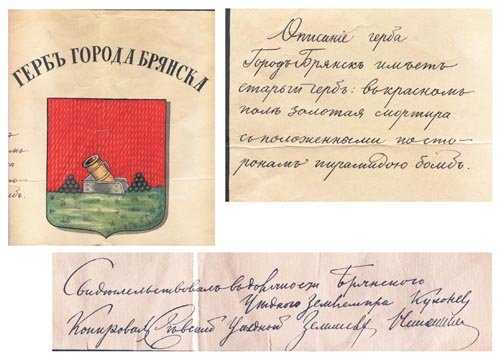 ГЕРБЪ ГОРОДА БРЯНСКА
Описаніе герба
Городъ Брянскъ имѣетъ
старый гербъ: въ красномъ
полѣ золотая мортира
съ положенными по сто-
ронамъ пирамидою бомбъ.
Свидѣтельствовалъ въ должности Брянскаго
Уѣзднаго Землемѣра
Копировалъ Уѣздный Землемѣръ